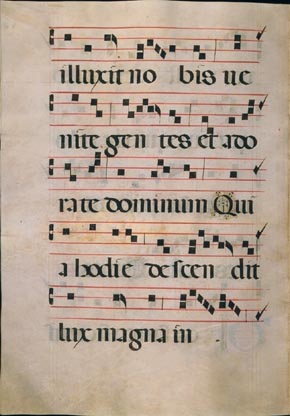 illuxit no bis ue
nite gen tes et ado
rate dominum Qui
a hodie descen dit
lux magna in